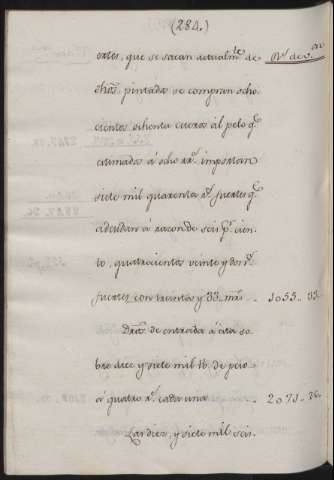 (284.)
ortes, que se sacan actualm.te de R.s de v.on
chas pintadas se compran ocho
cientos ochenta cueros al pelo q.e
estimados á ocho rr.s importan
siete mil quarenta r.s fuertes q.e
adeudan á razon de seis p.r cien-
to, quatrocientos veinte y dos r.s
fuertes con treinta y 33. mrs. 1055. 33.
Dros. de entrada á esta so-
bre diez y siete mil lb. de peso
á quatro r.s cada una 2071.
Las diez, y siete mil seis-